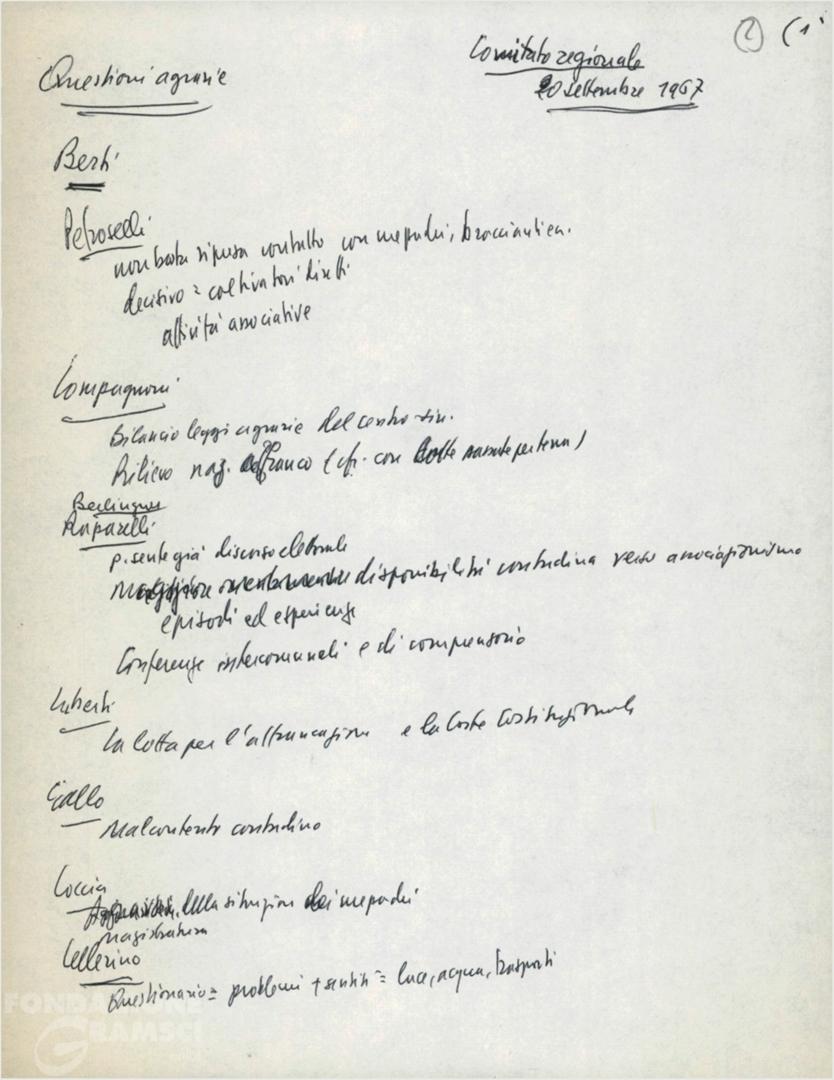 (2) (1
Comitato regionale
Questioni agrarie
20 settembre 1967
Berti
Petroselli
non basta ripresa contatto con mezzadri, bracciantica.
decisivo = coltivatori diretti
attività associative
Compagnoni
Bilancio leggi agrarie del centro-sin.
Rilievo naz. (cfr. con lotte per terra)
Berlinguer
Raparelli
p. sente già discorso elettorale
Maggiore disponibilità contadina verso associazionismo
episodi ed esperienze
Conferenze intercomunali e di comprensorio
Luberti
La lotta per l'affrancazione e la Corte Costituzionale
Gallo
Malcontento contadino
Coccia
della situazione dei mezzadri
magistratura
Cellerino
Questionario = problemi + sentiti = luce, acqua, trasporti
FONDAZIONE
GRAMSCI